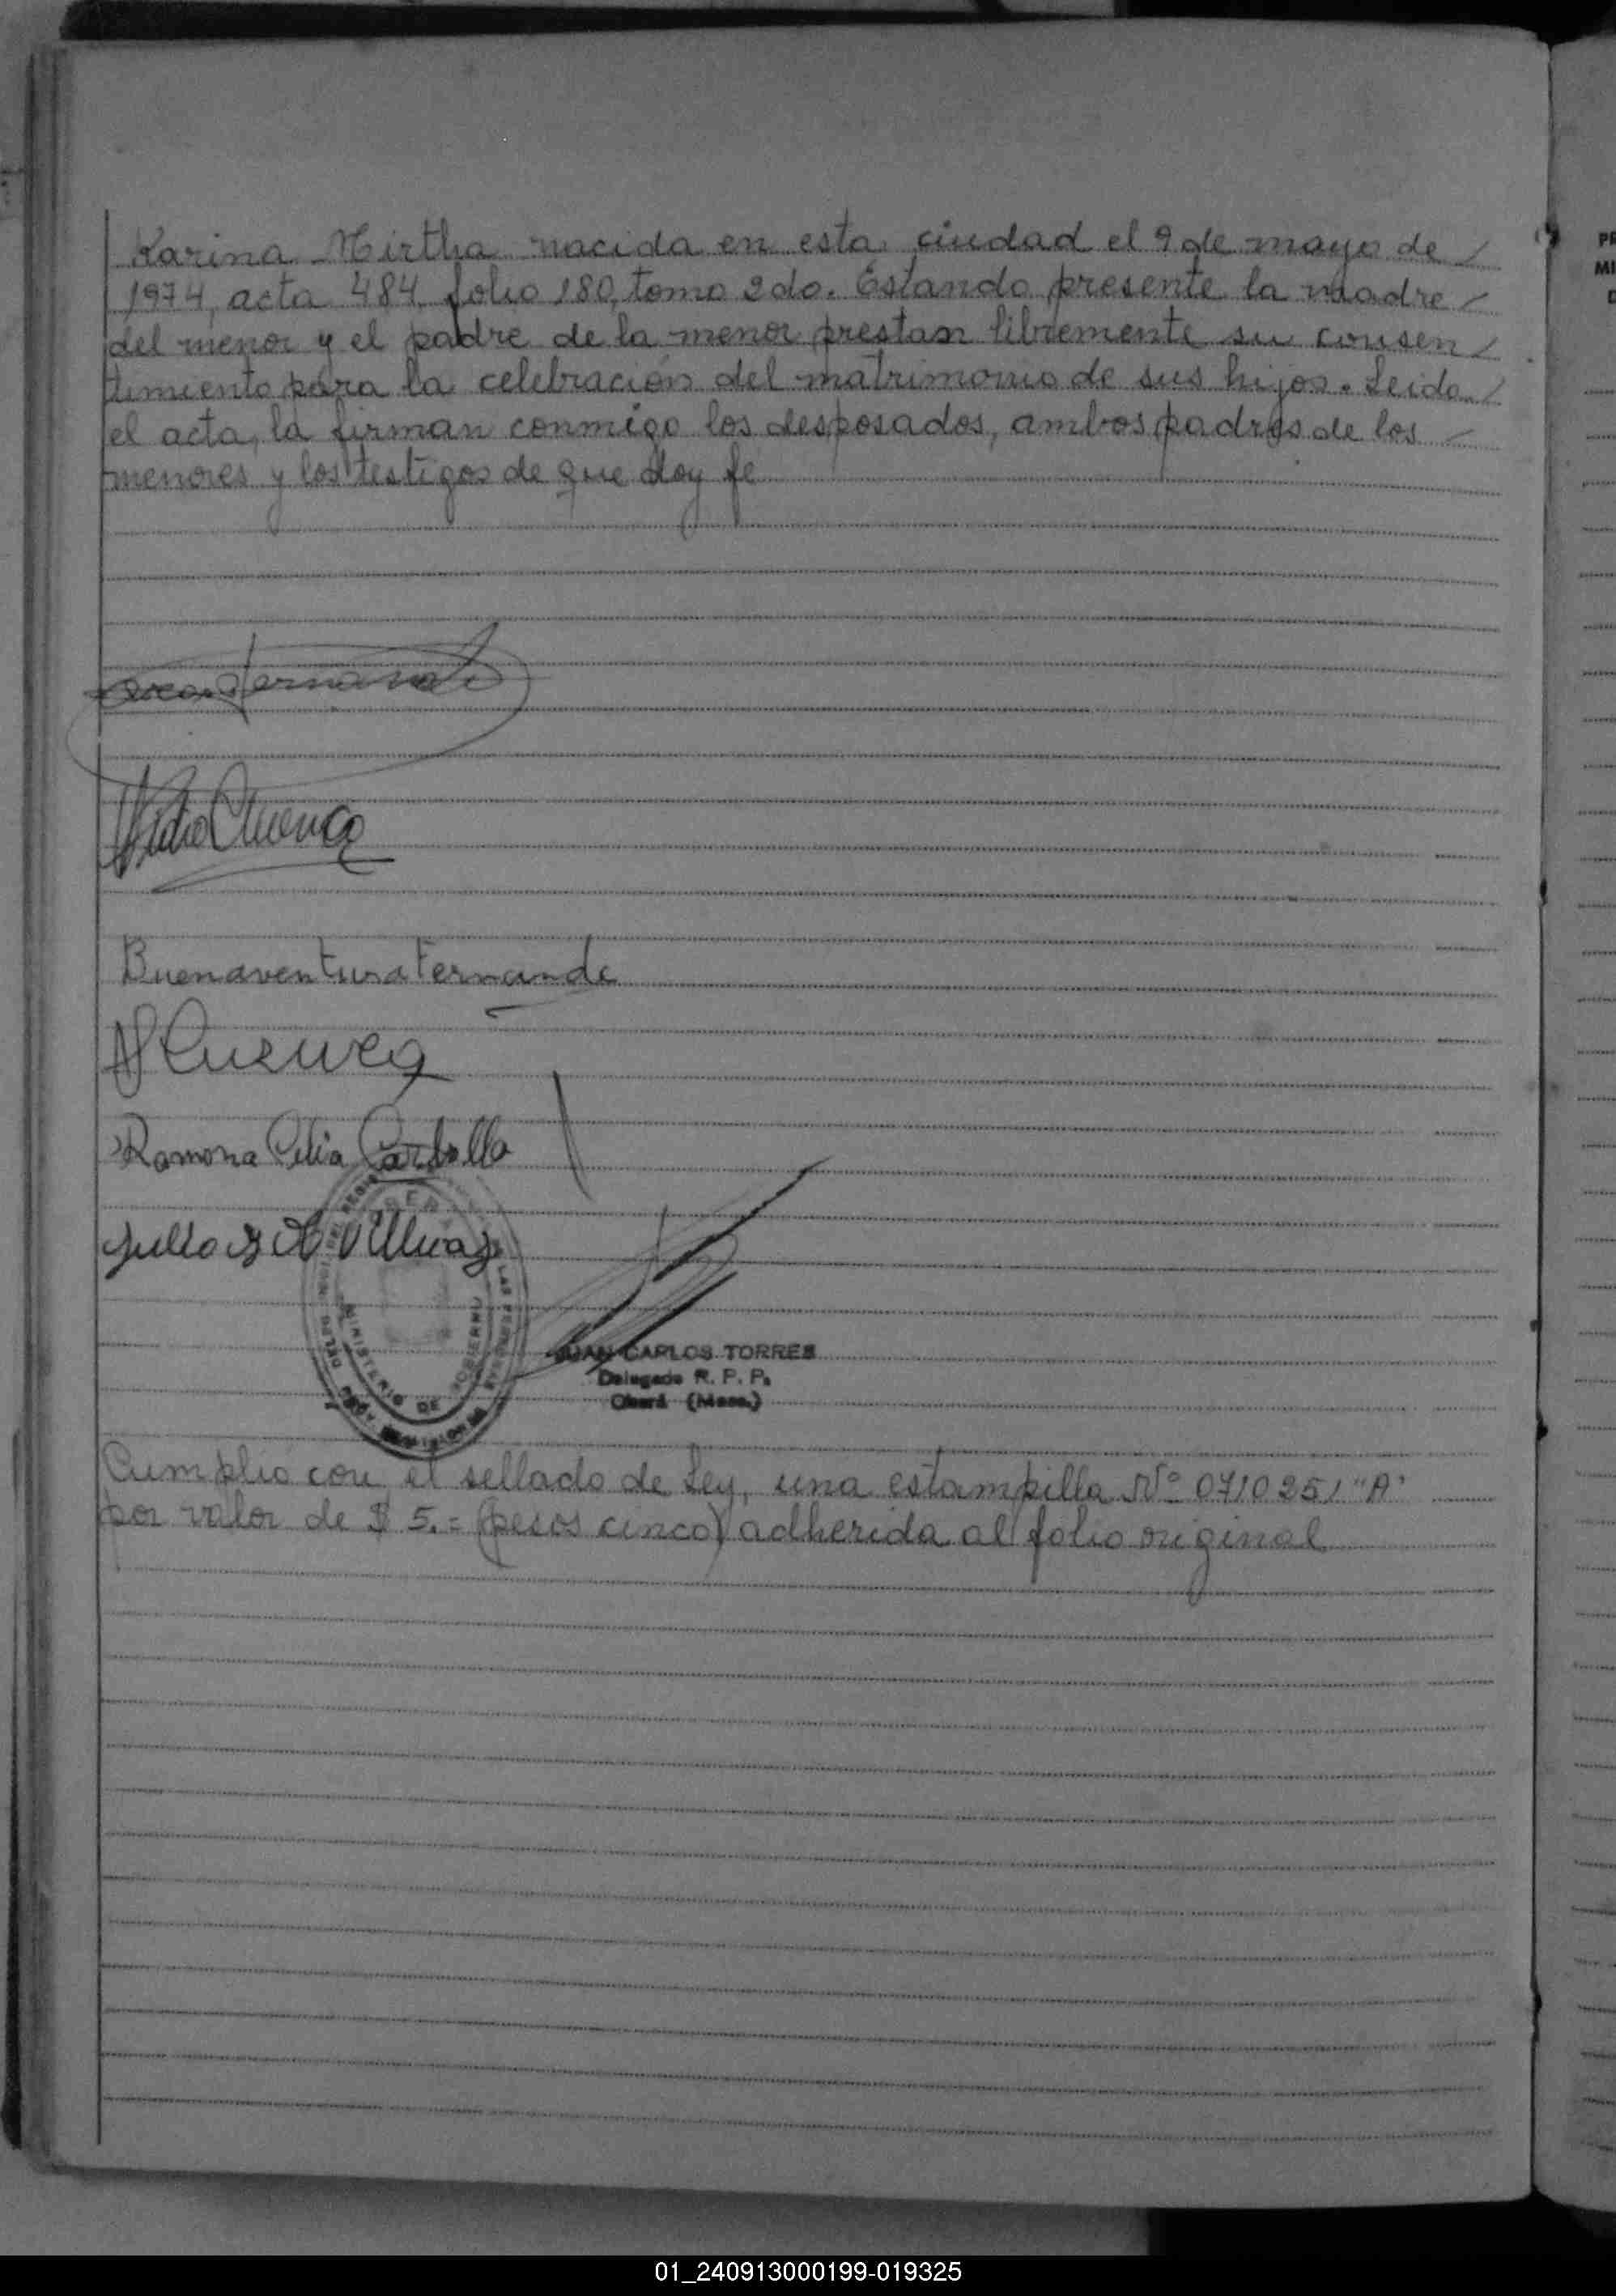 Karina Mirtha nacida en esta ciudad el 9 de mayo de /
1974, acta 484 folio 180, tomo 2do. Estando presente la madre /
del menor y el padre de la menor prestan libremente su consen /
timiento para la celebración del matrimonio de sus hijos. Leida /
el acta, la firman conmigo los desposados, ambos padres de los /
menores y los testigos de que doy fe
Buenaventura Fernande
Cuenca
Ramona Celia
JUAN CARLOS TORRES
Delegado R. P. P.
Oberá (Mnes.)
MINISTERIO DE GOBIERNO
Cumplió con el sellado de Ley, una estampilla Nº 0710251 "A"
por valor de $ 5.= (pesos cinco) adherida al folio original
01_240913000199-019325